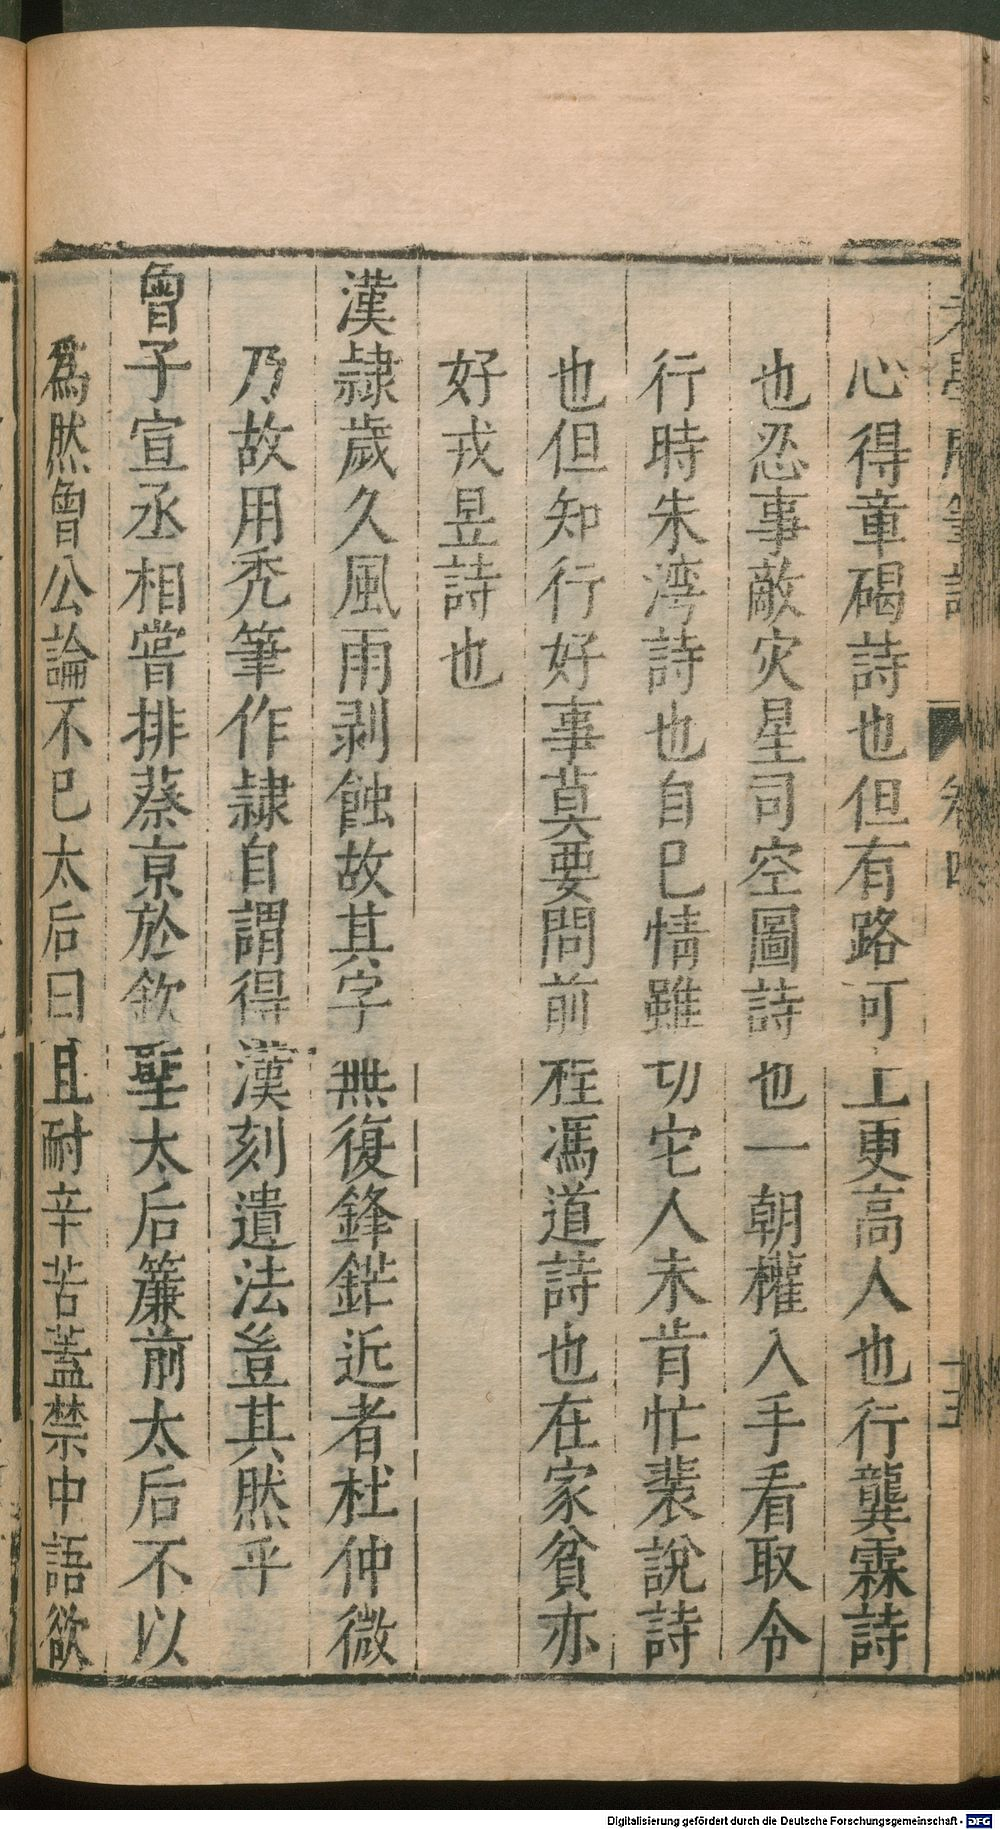 老學庵筆記 卷四 十五
心得章碣詩也但有路可上更高人也行龔霖詩
也忍事敵灾星司空圖詩也一朝權入手看取令
行時朱湾詩也自巳情雖切它人未肯忙裴說詩
也但知行好事莫要問前程馮道詩也在家貧亦
好戎昱詩也
漢隷歲久風雨剥蝕故其字無復鋒鋩近者杜仲微
乃故用禿筆作隷自謂得漢刻遺法豈其然乎
曾子宣丞相嘗排蔡京於欽聖太后簾前太后不以
爲然曾公論不已太后曰且耐辛苦蓋禁中語欲
Digitalisierung gefördert durch die Deutsche Forschungsgemeinschaft - DFG